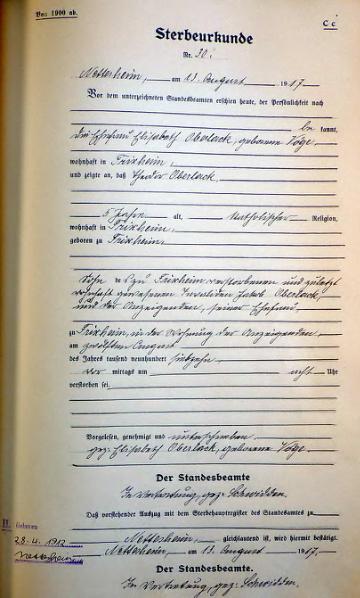 Von 1900 ab.
C c
Sterbeurkunde
Nr. 30.
Nettersheim, am 13. August 1917.
Vor dem unterzeichneten Standesbeamten erschien heute, der Persönlichkeit nach
be kannt,
die Ehefrau Elisabeth Oberlack, geborene Vöge,
wohnhaft in Frixheim,
und zeigte an, daß Theodor Oberlack
5 Jahre alt, katholischer Religion,
wohnhaft in Frixheim,
geboren zu Frixheim,
Sohn des zu Frixheim verstorbenen und zuletzt
wohnhaft gewesenen Invaliden Jakob Oberlack,
und der Anzeigenden, seiner Ehefrau,
zu Frixheim, in der Wohnung der Anzeigenden,
am zwölften August
des Jahres tausend neunhundert siebzehn
vor mittags um acht Uhr
verstorben sei.
Vorgelesen, genehmigt und unterschrieben
gez. Elisabeth Oberlack, geborene Vöge.
Der Standesbeamte
In Vertretung, gez.
Daß vorstehender Auszug mit dem Sterbehauptregister des Standesamts zu
Nettersheim, gleichlautend ist, wird hiermit bestätigt.
Nettersheim, am 13. August 1917.
Der Standesbeamte.
In Vertretung, gez.
H. Geboren
28.4.1912